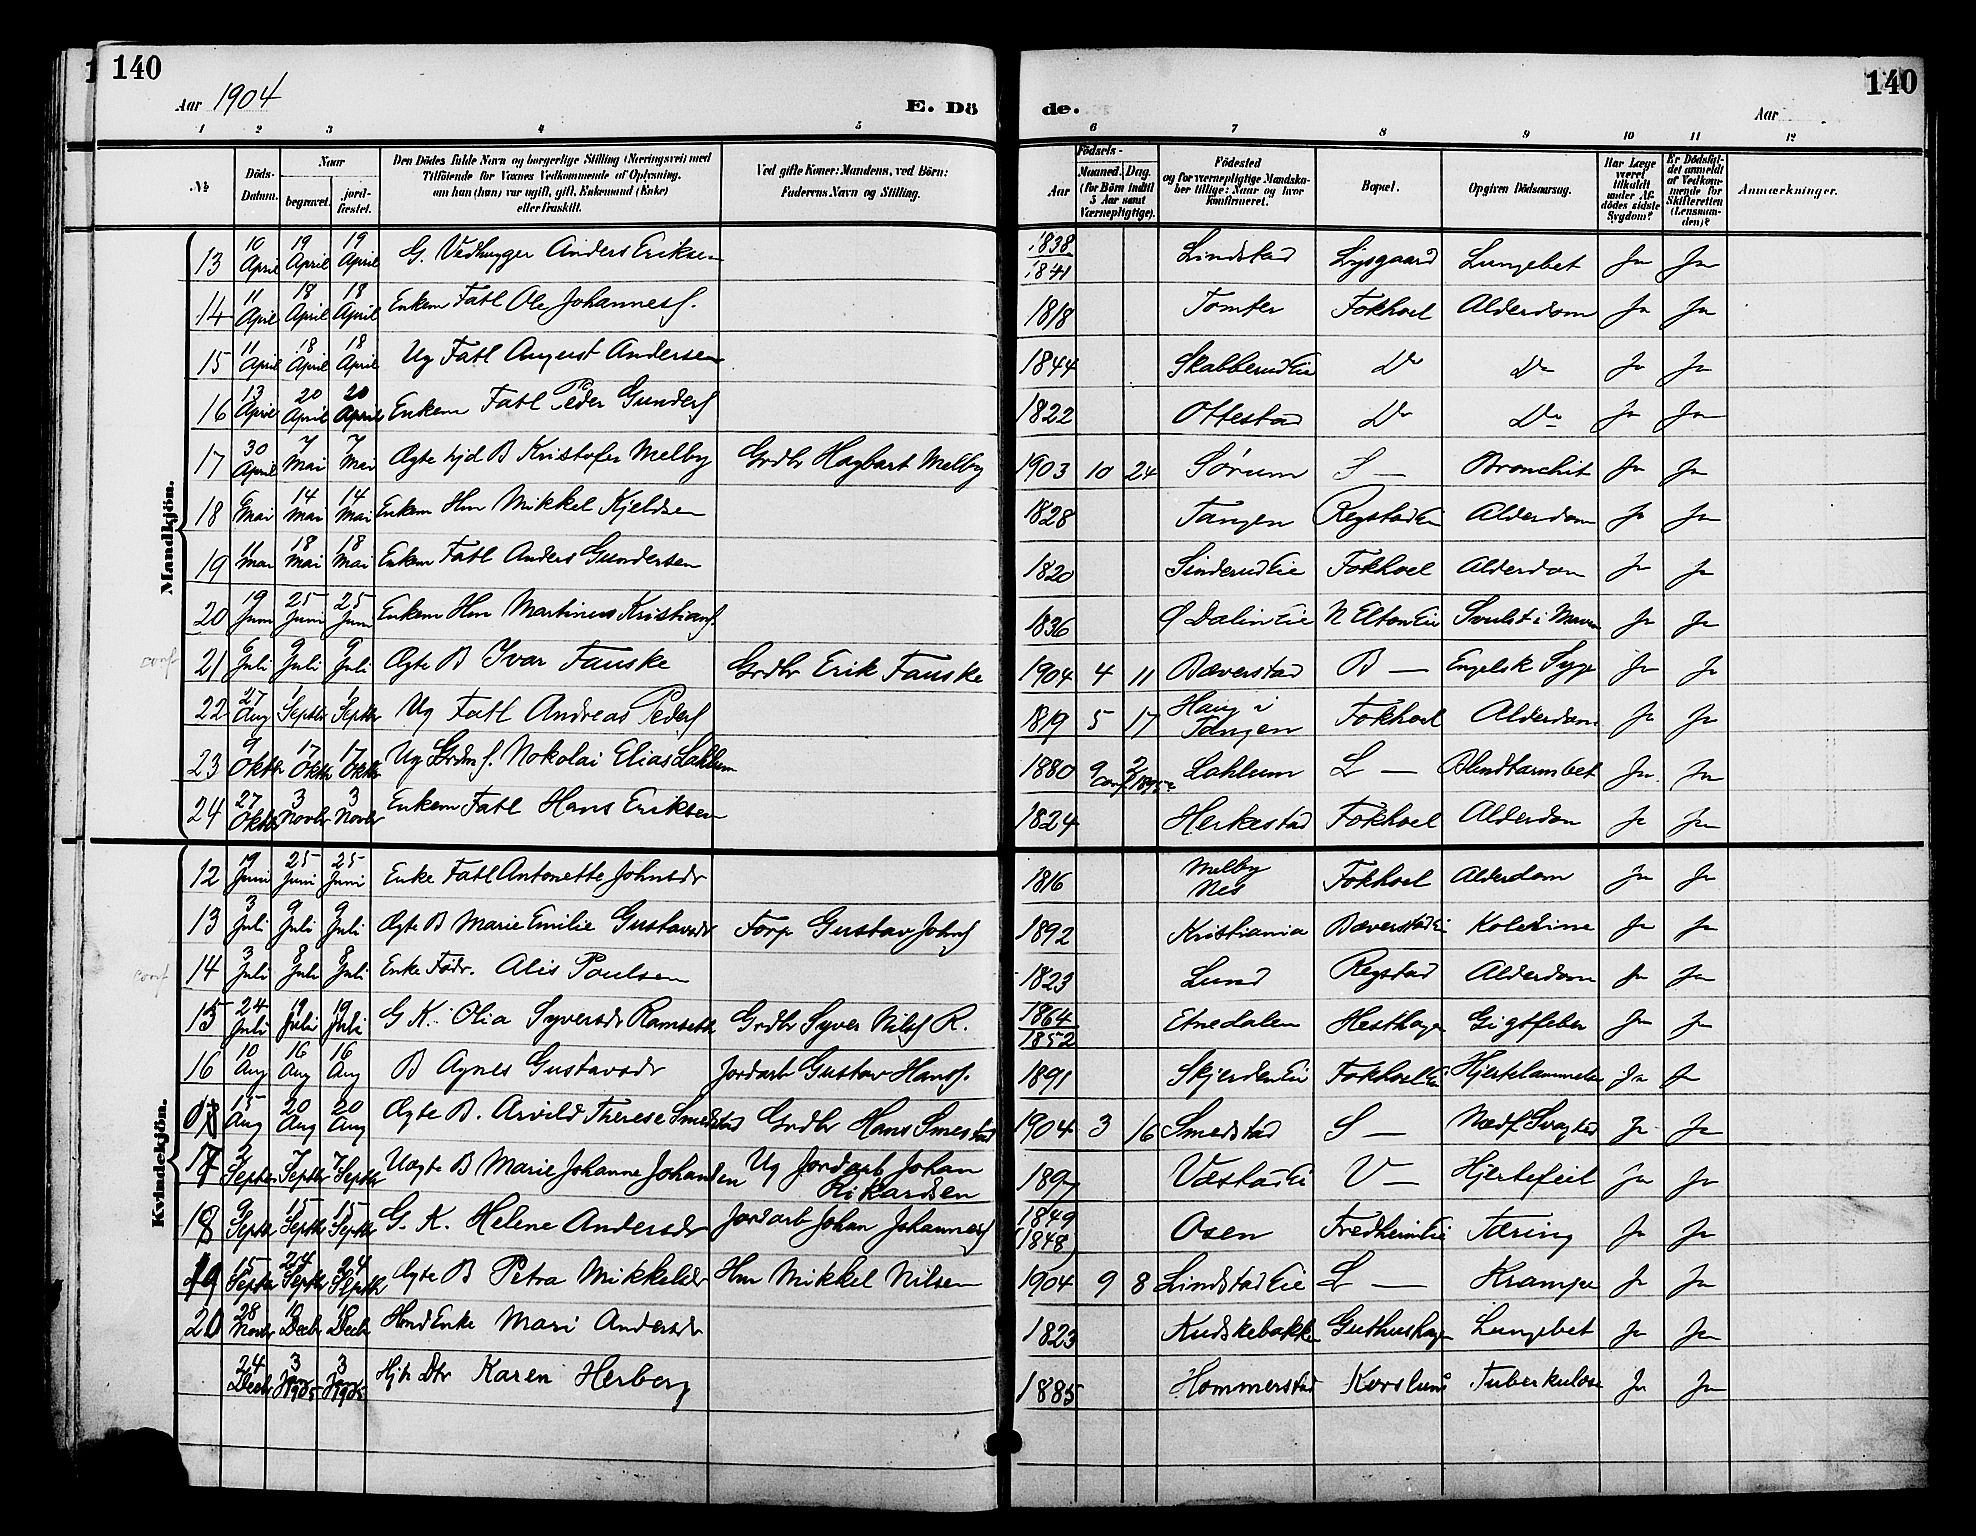 140
140
Aar 1904
E. Dö
de.
Aar
1 2 3 4 5 6 7 8 9 10 11 12
№
Döds-Datum.
Naar
begravet.
jordfæstet.
Den Dödes fulde Navn og borgerlige Stilling (Næringsvei) med Tilföiende for Voxnes Vedkommende af Oplysning, om han (hun) var ugift, gift, Enkemand (Enke) eller fraskilt.
Ved gifte Koner: Mandens, ved Börn: Faderens Navn og Stilling.
Födsels-
Aar
Maaned. Dag.
(for Börn indtil 5 Aar samt Værnepligtige).
Födested og for værnepligtige Mandskaber tillige: Naar og hvor konfirmeret.
Bopæl.
Opgiven Dödsaarsag.
Har Læge været tilkaldt under Afdödes sidste Sygdom?
Er Dödsfaldet anmeldt af Vedkommende for Skifteretten (Lensmanden)?
Anmærkninger.
Mandkjön.
13 10 April 19 April 19 April G. Vedhugger Anders Eriksen 1838 1841 Lindstad Lysgaard Lungebet Ja Ja
14 11 April 18 April 18 April Enkem Fatl Ole Johannesf. 1818 Tomter Fokhoel Alderdom Ja Ja
15 11 April 18 April 18 April Ug Fatl August Andersen 1844 Skabberud Eie Do Do Ja Ja
16 13 April 20 April 20 April Enkem Fatl Peder Gundersf 1822 Ottestad Do Do Ja Ja
17 30 April 7 Mai 7 Mai Ægte hjd B Kristofer Melby Grdbr Hagbart Melby 1903 10 24 Sörum S — Bronchit Ja Ja
18 6 Mai 14 Mai 14 Mai Enkem Hm Mikkel Kjeldsen 1828 Tangen Regstad Ei Alderdom Ja Ja
19 11 Mai 18 Mai 18 Mai Enkem Fatl Anders Gundersen 1820 Sinderud Eie Fokhoel Alderdom Ja Ja
20 19 Juni 25 Juni 25 Juni Enkem Hm Martinus Kristiansf. 1836 Ø Dalin Eie N Elton Eie Svulst i Maven Ja Ja
conf 21 6 Juli 9 Juli 9 Juli Ægte B Ivar Fauske Grdbr Erik Fauske 1904 4 11 Bæverstad B — Engelsk Syge Ja Ja
22 27 Aug 1 Septbr 1 Septbr Ug Fatl Andreas Pedersf 1819 5 17 Haug i Tangen Fokhoel Alderdom Ja Ja
23 9 Oktbr 17 Oktbr 17 Oktbr Ug Grdmf. Nokolai Elias Lahlum 1880 9 2 Conf 1895 Lahlum L — Blindtarmbet Ja Ja
24 27 Oktbr 3 Novbr 3 Novbr Enkem Fatl Hans Eriksen 1824 Herkestad Fokhoel Alderdom Ja Ja
Kvindekjön.
12 19 Juni 25 Juni 25 Juni Enke Fatl Antonette Johnsdr 1816 Melby Nes Fokhoel Alderdom Ja Ja
13 3 Juli 9 Juli 9 Juli Ægte B Marie Emilie Gustavsdr Forp Gustav Johnsf 1892 Kristiania Bæverstad Ei Kolerine Ja Ja
conf 14 3 Juli 8 Juli 8 Juli Enke Födr. Alis Poulsen 1823 Lund Regstad Alderdom Ja Ja
15 24 Juli 19 Juli 19 Juli G K. Olia Syversdr Ramseth Grdbr Syver Nilsf R. 1864 1852 Etnedalen Hesthagen Gigtfeber Ja Ja
16 10 Aug 16 Aug 16 Aug B Agnes Gustavsdr Jordarb Gustav Hansf. 1891 Skjerden Eie Fokhoel Ei Hjertelammelse Ja Ja
15 Aug 20 Aug 20 Aug Ægte B. Arvild Therese Smedstad Grdbr Hans Smestad 1904 3 16 Smedstad S — Medf. Svaghed Ja Ja
17 2 Septbr 7 Septbr 7 Septbr Uægte B Marie Johanne Johansen Ug Jordarb Johan Rikardsen 1897 Vestad Ei V — Hjertefeil Ja Ja
18 9 Septbr 15 Septbr 15 Septbr G. K. Helene Andersdr Jordarb Johan Johannesf 1849 (1848) Osen Fredheim Eie Tæring Ja Ja
19 15 Septbr 24 Septbr 24 Septbr Ægte B Petra Mikkelsdr Hm Mikkel Nilsen 1904 9 8 Lindstad Eie L — Krampe Ja Ja
20 28 Novbr 10 Decbr 10 Decbr Hmd Enke Mari Andersdr 1823 Kudskebakken Guthushagen Lungebet Ja Ja
24 Decbr 3 Jan 1905 3 Jan 1905 Hjv Dtr Karen Herberg 1885 Hommerstad Korslund Tuberkulose Ja Ja